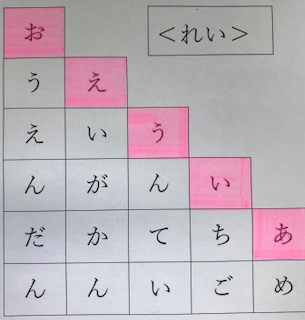 ＜れい＞
あめ
いちご
うんてい
えいがかん
おうえんだん